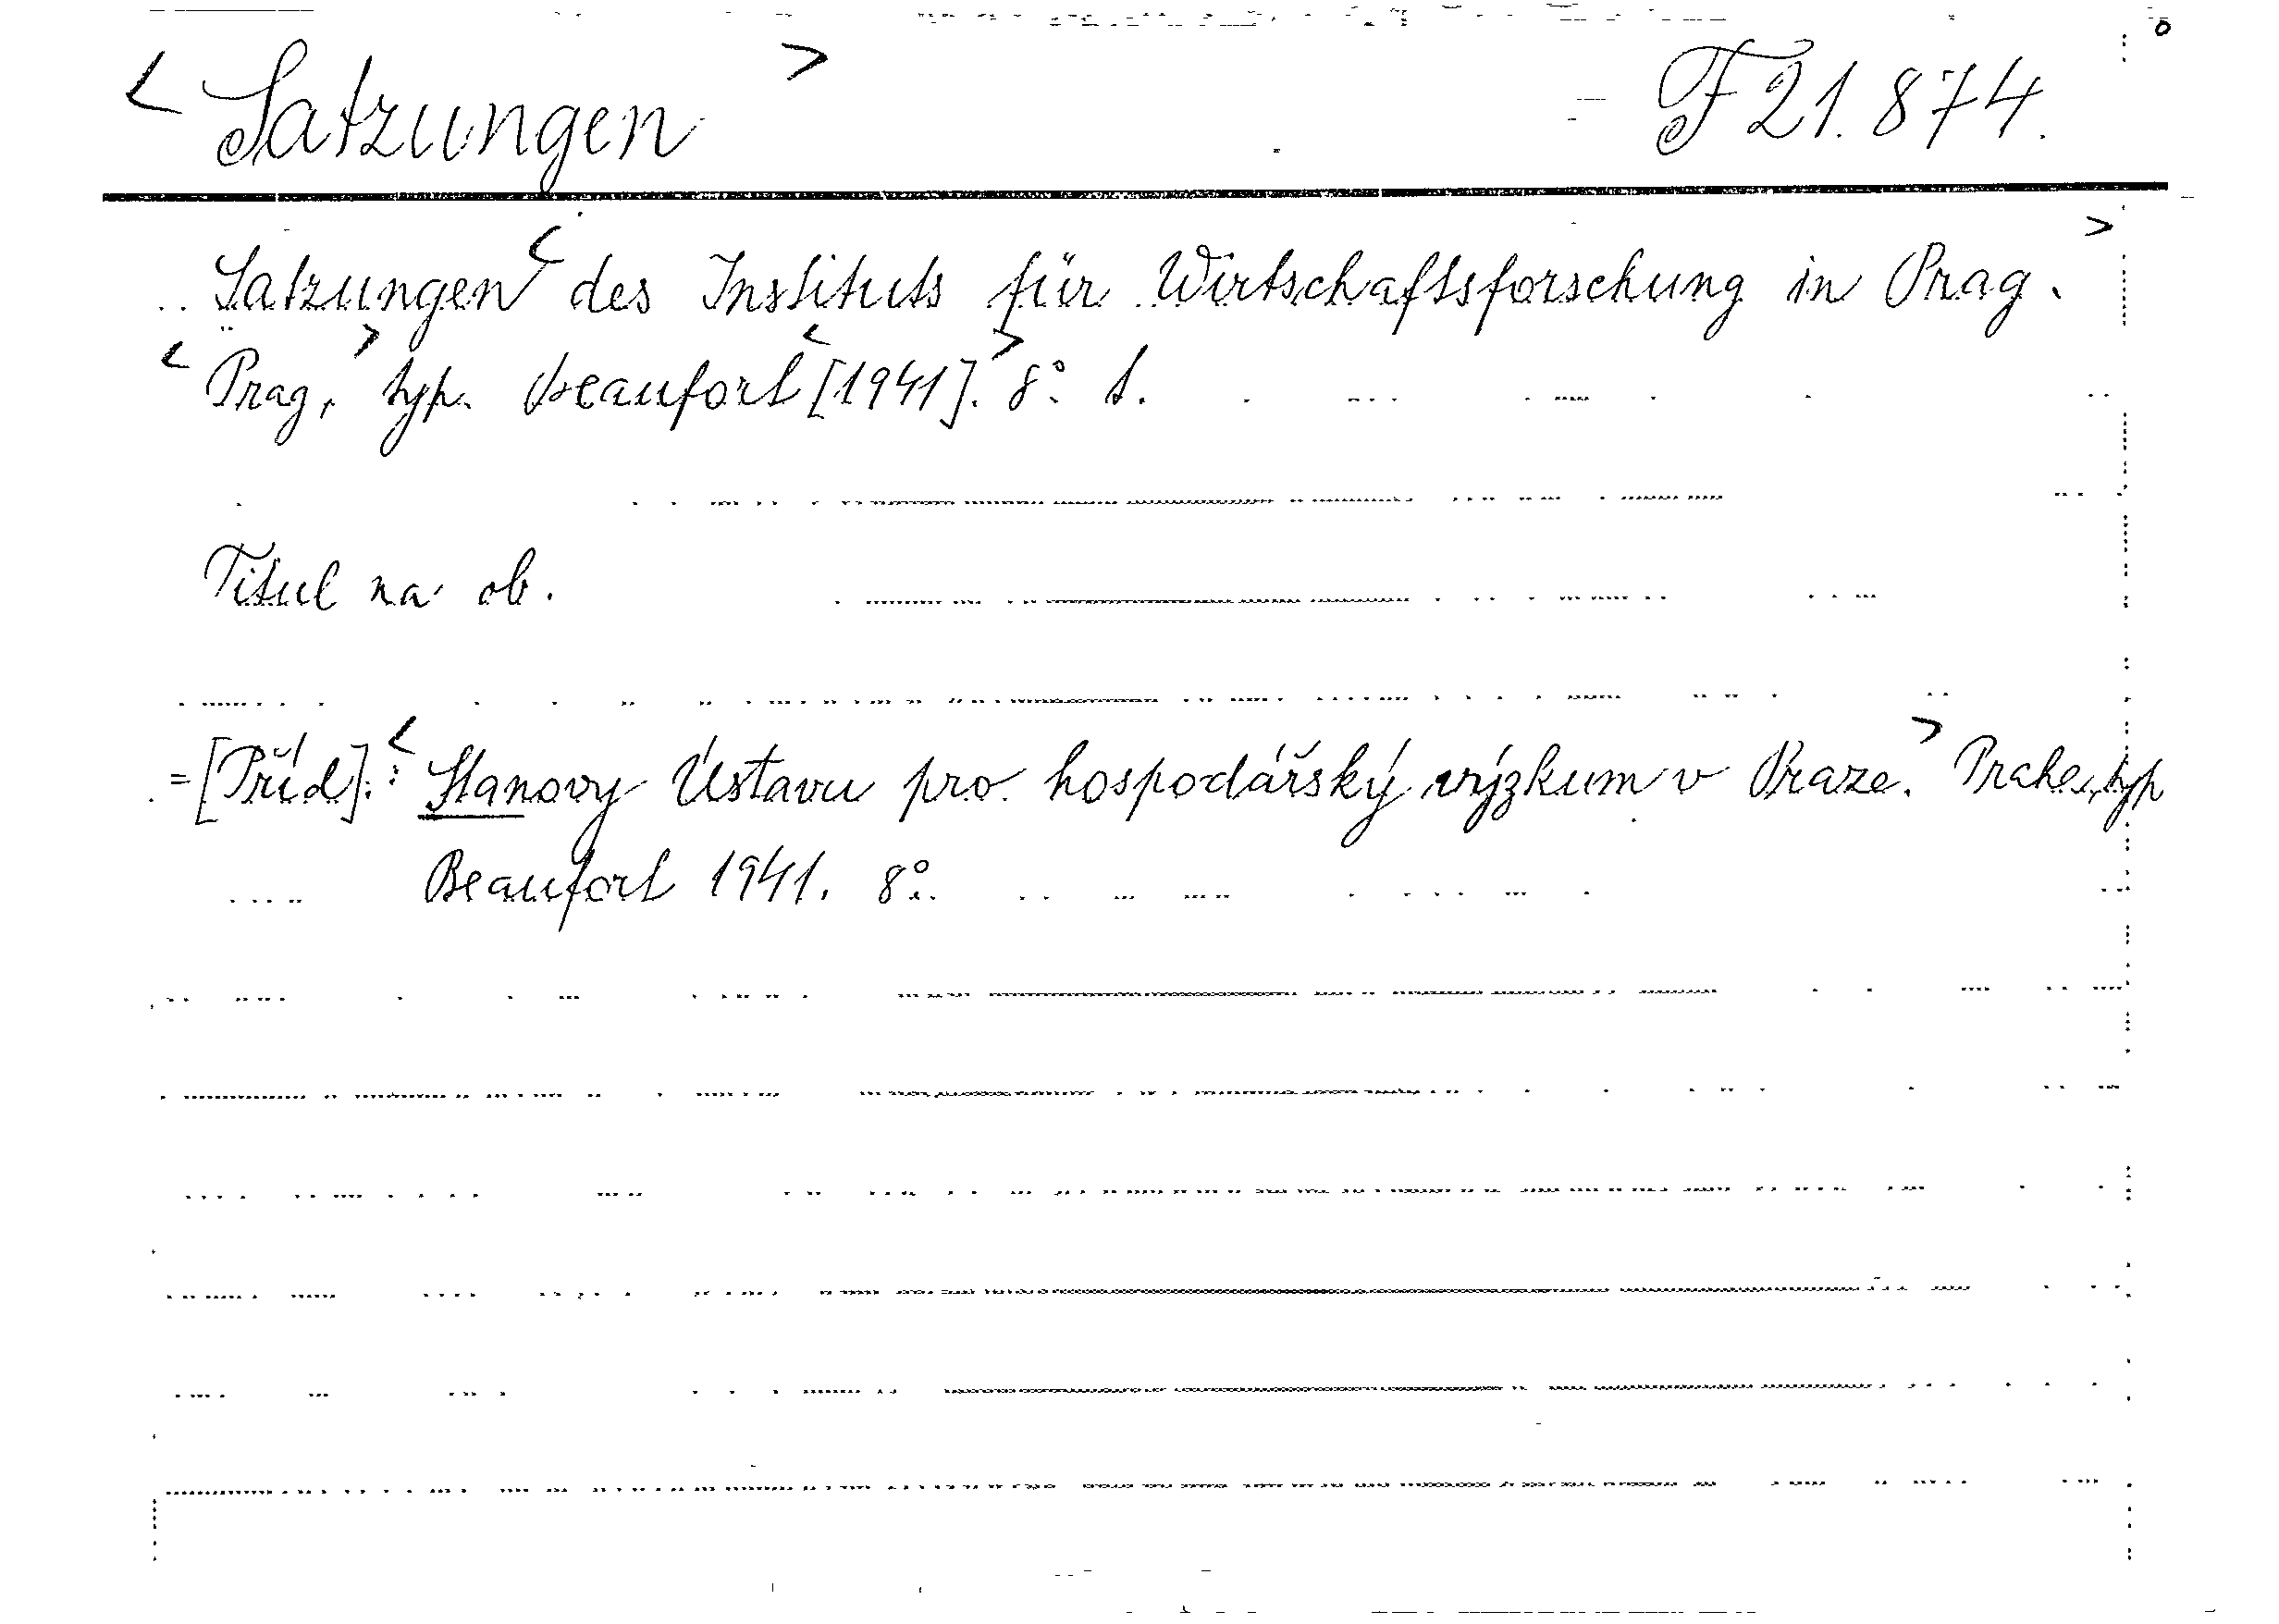 < Satzungen > F 21.874.
Satzungen < des Instituts für Wirtschaftsforschung in Prag. >
< Prag, > typ. Beaufort < [1941]. > 8°.
Titul na ob.
= [Příd].: < Stanovy Ústavu pro hospodářský výzkum v Praze. > Praha, typ
Beaufort 1941. 8°.